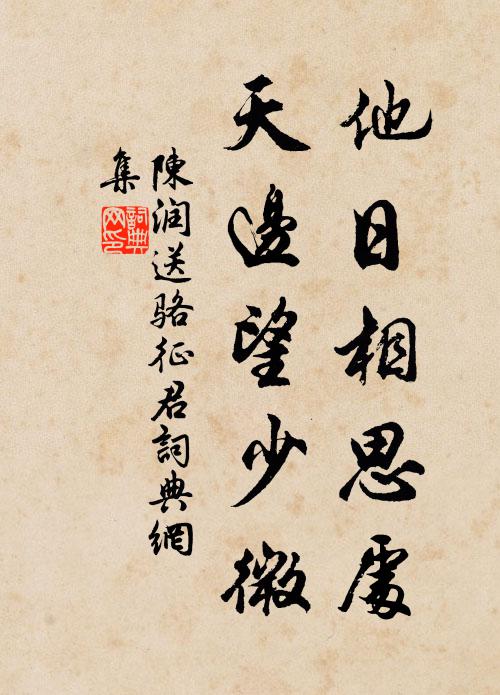 他日相思處
天邊望少微
陳润送骆征君詞典網
集
詞典网印